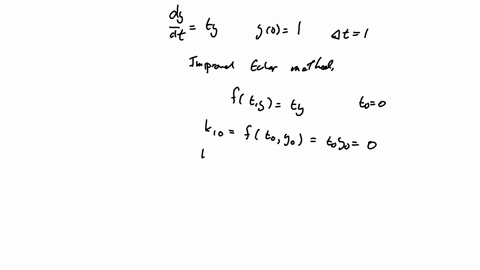 dy/dt = ty y(0) = 1 Δt = 1
Improved Euler method,
f(t,y) = ty t₀=0
k₁,₀ = f(t₀, y₀) = t₀y₀ = 0